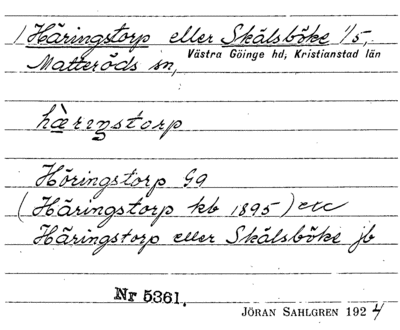 1) Häringstorp eller Skälsböke 1/5,
Västra Göinge hd, Kristianstad län
Matteröds sn,
hæ̀rıŋstorp
Höringstorp Ga
(Häringstorp kb 1895) etc
Häringstorp eller Skälsböke jb
Nr 5361.
JÖRAN SAHLGREN 1924